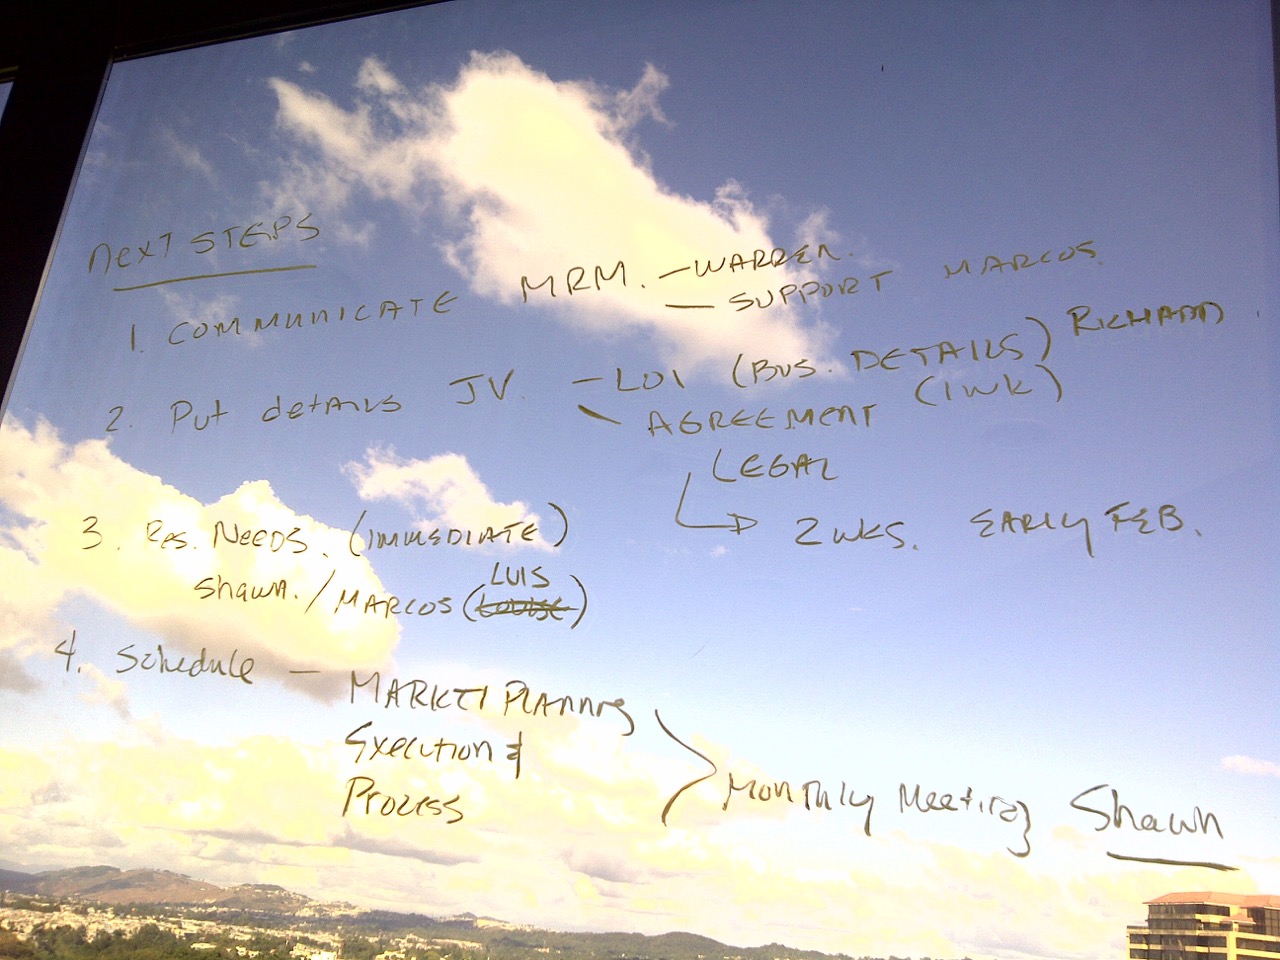 NEXT STEPS
1. COMMUNICATE MRM. – WARREN.
– SUPPORT MARCOS.
2. Put details JV. – LOI (BUS. DETAILS) RICHARD
– AGREEMENT (1WK)
LEGAL
→ 2 WKS. EARLY FEB.
3. Res. NEEDS. (IMMEDIATE)
Shawn. / MARCOS (LUIS LOUISE)
4. Schedule – MARKET PLANNING
Execution &
Process
Monthly Meeting Shawn